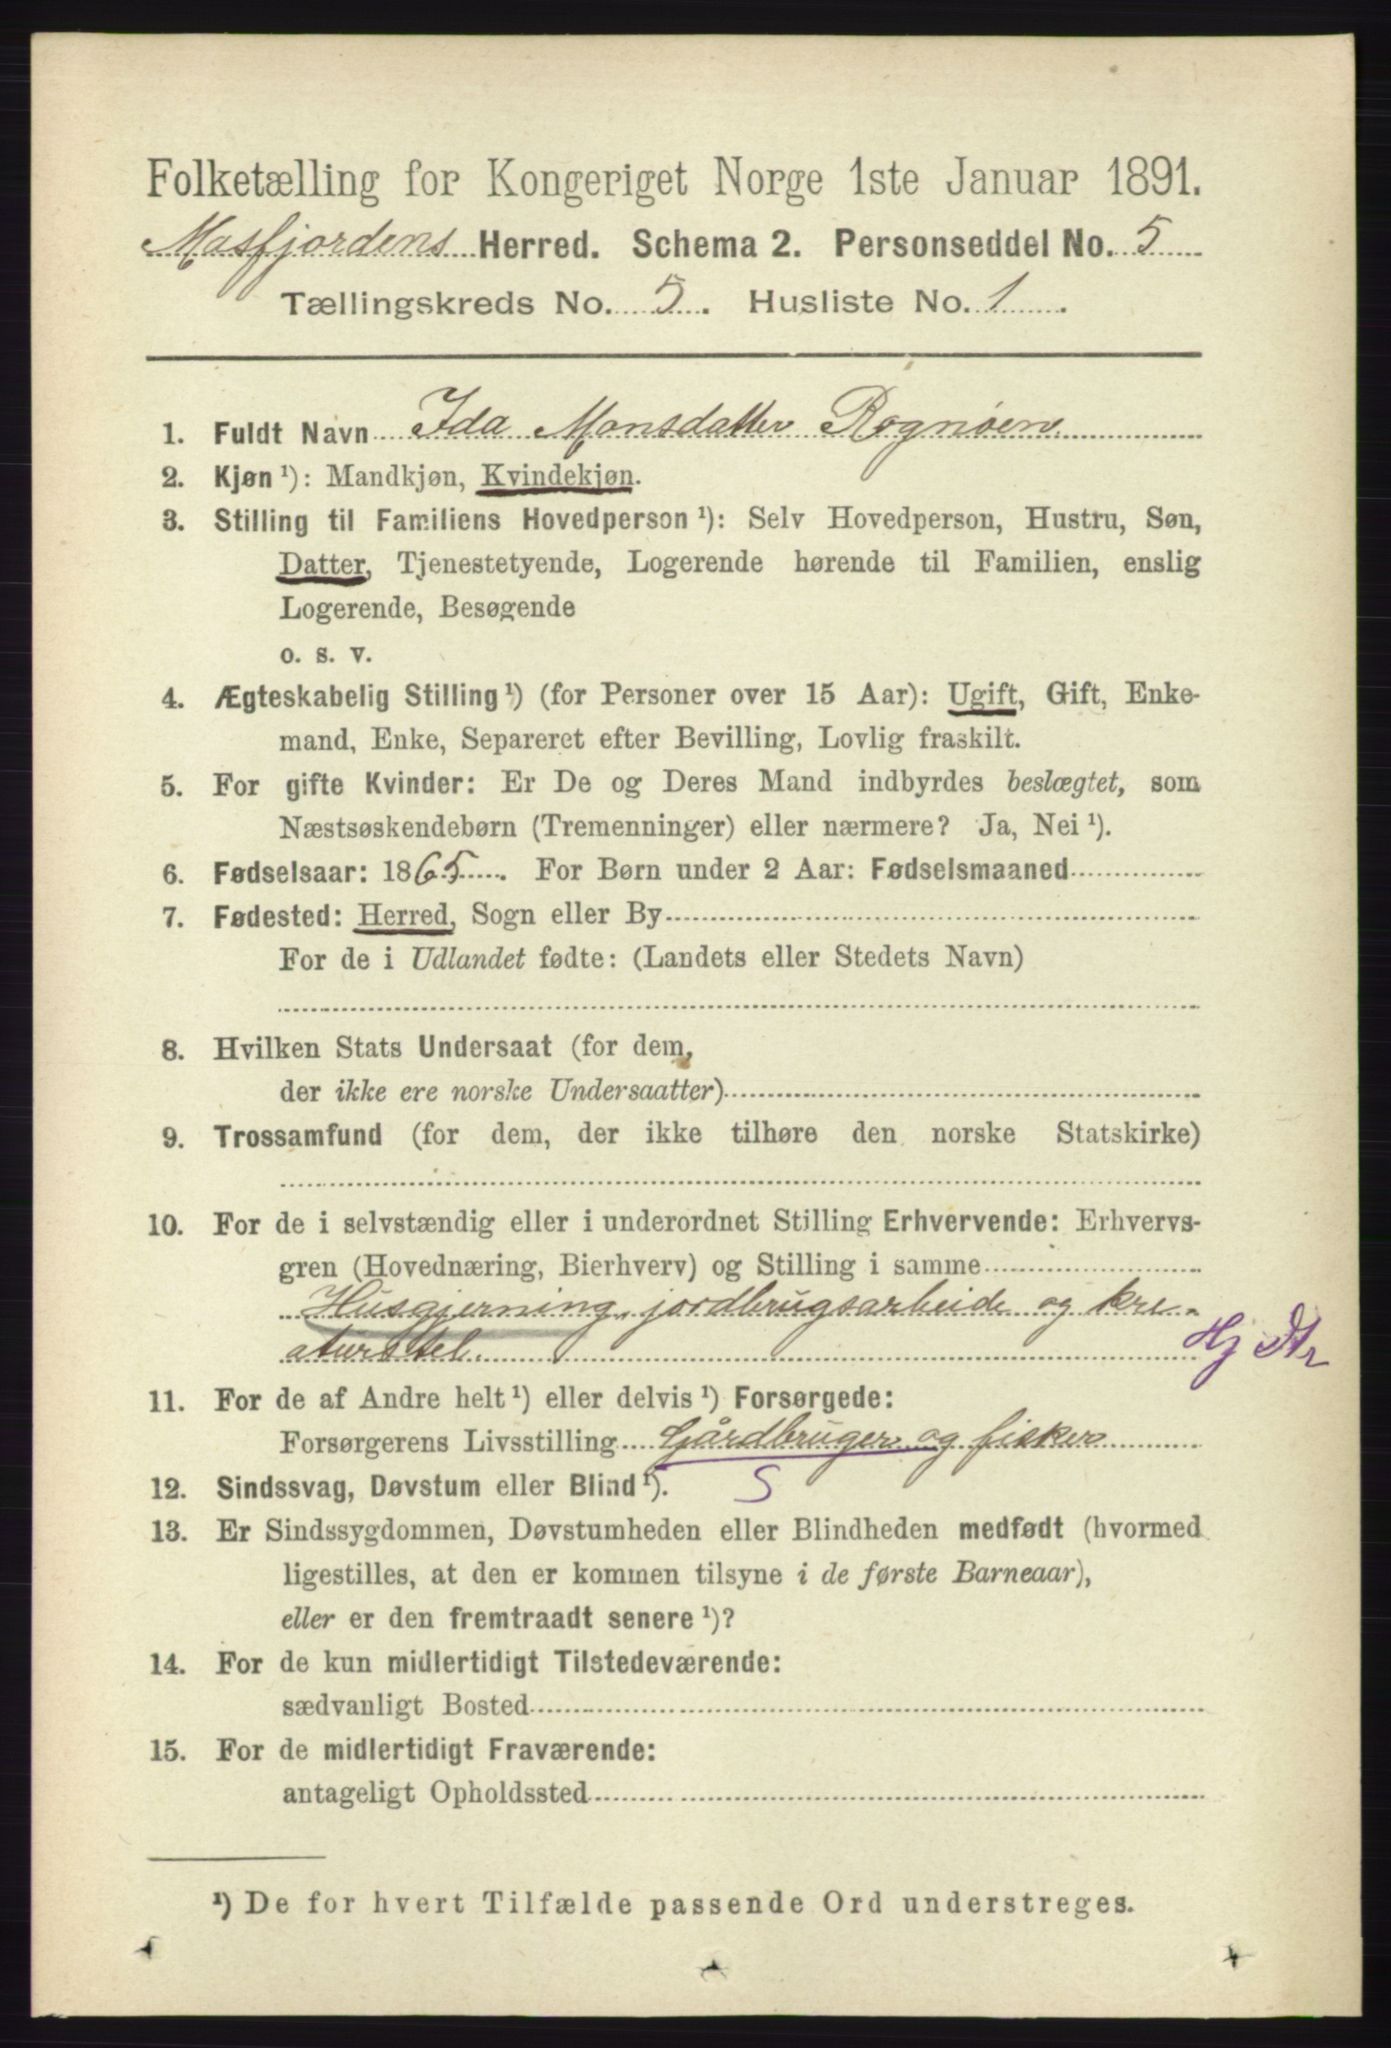 Folketælling for Kongeriget Norge 1ste Januar 1891.
Masfjordens Herred. Schema 2. Personseddel No. 5
Tællingskreds No. 5. Husliste No. 1.
1. Fuldt Navn Ida Monsdatter Rognøen
2. Kjøn ¹): Mandkjøn, Kvindekjøn.
3. Stilling til Familiens Hovedperson ¹): Selv Hovedperson, Hustru, Søn,
Datter, Tjenestetyende, Logerende hørende til Familien, enslig
Logerende, Besøgende
o. s. v.
4. Ægteskabelig Stilling ¹) (for Personer over 15 Aar): Ugift, Gift, Enke-
mand, Enke, Separeret efter Bevilling, Lovlig fraskilt.
5. For gifte Kvinder: Er De og Deres Mand indbyrdes beslægtet, som
Næstsøskendebørn (Tremenninger) eller nærmere? Ja, Nei ¹).
6. Fødselsaar: 1865. For Børn under 2 Aar: Fødselsmaaned
7. Fødested: Herred, Sogn eller By
For de i Udlandet fødte: (Landets eller Stedets Navn)
8. Hvilken Stats Undersaat (for dem,
der ikke ere norske Undersaatter)
9. Trossamfund (for dem, der ikke tilhøre den norske Statskirke)
10. For de i selvstændig eller i underordnet Stilling Erhvervende: Erhvervs-
gren (Hovednæring, Bierhverv) og Stilling i samme
Husgjerning, jordbrugsarbeide og kre-
aturstel.
11. For de af Andre helt ¹) eller delvis ¹) Forsørgede:
Forsørgerens Livsstilling Gårdbruger og fisker
12. Sindssvag, Døvstum eller Blind ¹). S
13. Er Sindssygdommen, Døvstumheden eller Blindheden medfødt (hvormed
ligestilles, at den er kommen tilsyne i de første Barneaar),
eller er den fremtraadt senere ¹)?
14. For de kun midlertidigt Tilstedeværende:
sædvanligt Bosted
15. For de midlertidigt Fraværende:
antageligt Opholdssted
¹) De for hvert Tilfælde passende Ord understreges.